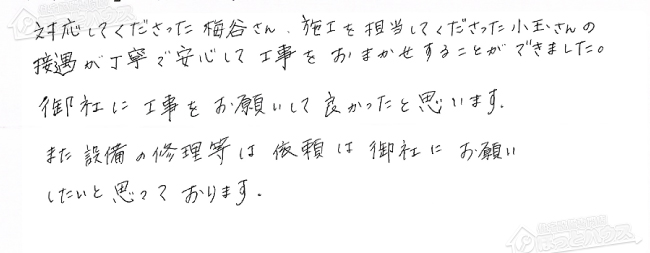 対応してくださった梅谷さん、施工を担当してくださった小玉さんの
接遇が丁寧で安心して工事をおまかせすることができました。
御社に工事をお願いして良かったと思います。
また設備の修理等は依頼は御社にお願い
したいと思っております。